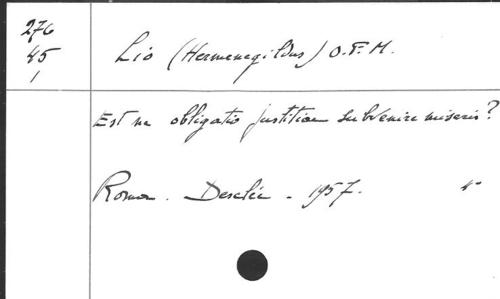 276
45
1
Lio (Hermenegildus) O.F.M.
Est ne obligatio justitiae subvenire miseris?
Roma. Desclée - 1957. 4°